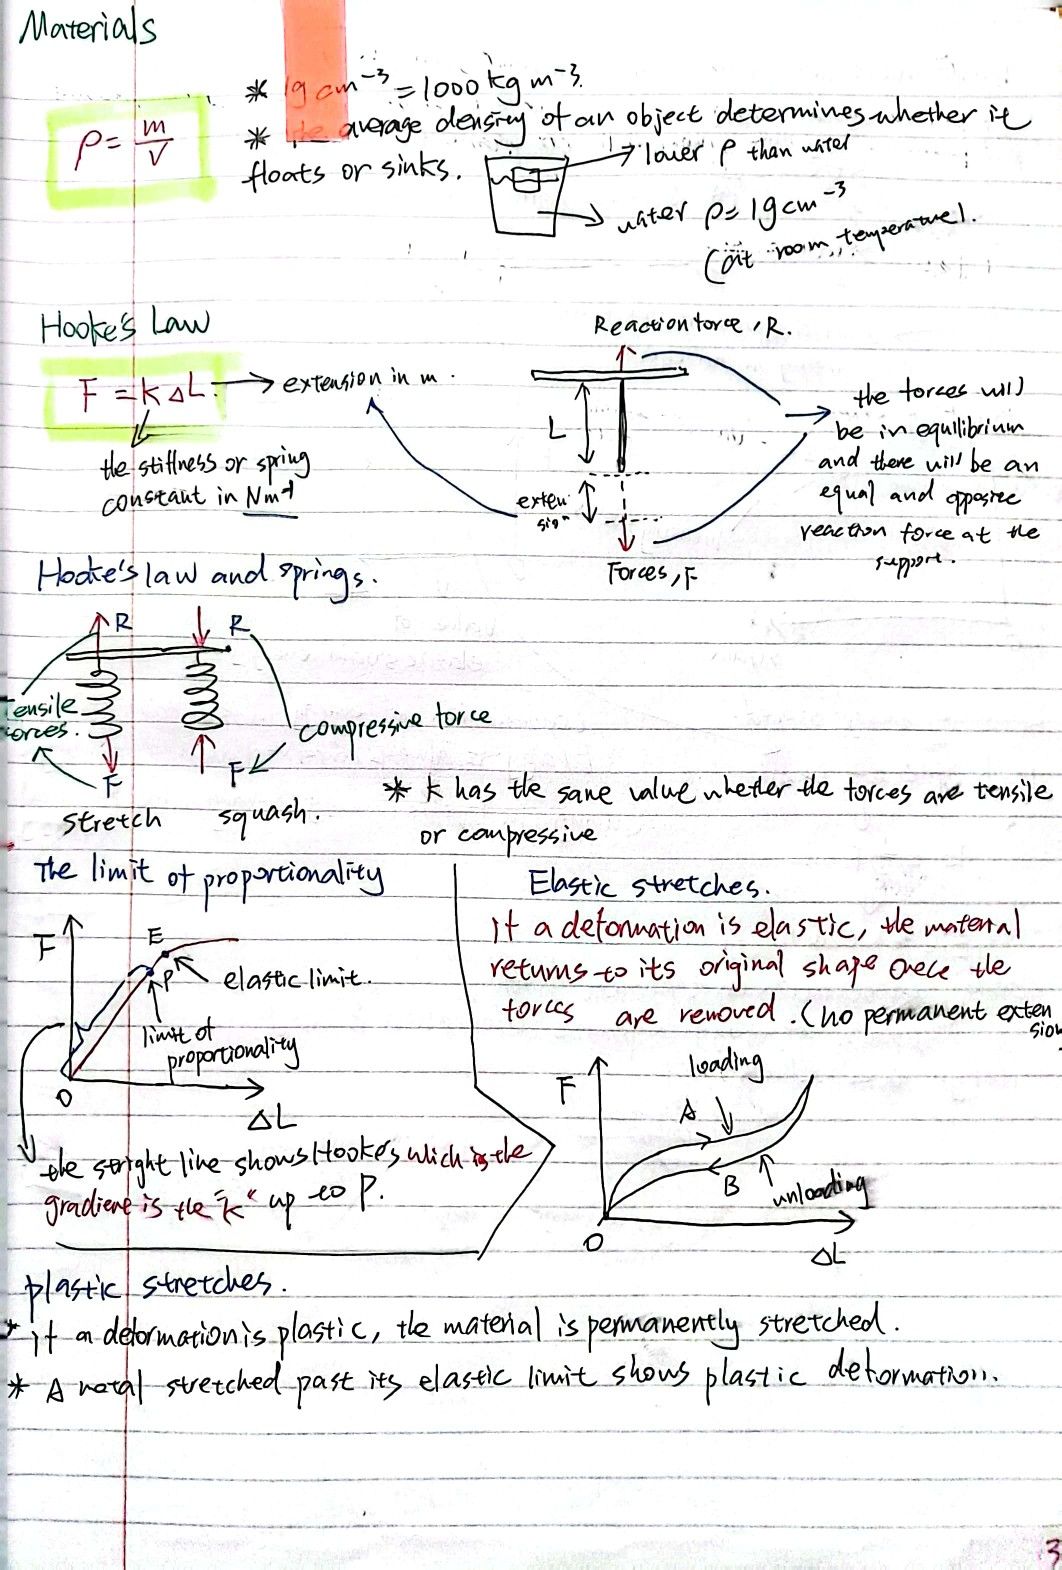 Materials
* 1g cm⁻³ = 1000 kg m⁻³.
ρ = m/V
* The average density of an object determines whether it
floats or sinks.
lower ρ than water
water ρ = 1g cm⁻³
(at room temperature).
Hooke's Law
F = k ΔL.
extension in m.
the stiffness or spring
constant in Nm⁻¹
Reaction force, R.
L
exten
sion
Forces, F
the forces will
be in equilibrium
and there will be an
equal and opposite
reaction force at the
support.
Hooke's law and springs.
R
R
Tensile
forces.
F
F
compressive force
stretch
squash.
* k has the same value whether the forces are tensile
or compressive
The limit of proportionality
F
E
P
elastic limit.
limit of
proportionality
O
ΔL
the stright line shows Hooke's which is the
gradient is the "k" up to P.
Elastic stretches.
if a deformation is elastic, the material
returns to its original shape once the
forces are removed. (no permanent exten
sion.
F
loading
A
B
unloading
O
ΔL
plastic stretches.
* if a deformation is plastic, the material is permanently stretched.
* A metal stretched past its elastic limit shows plastic deformation.
3